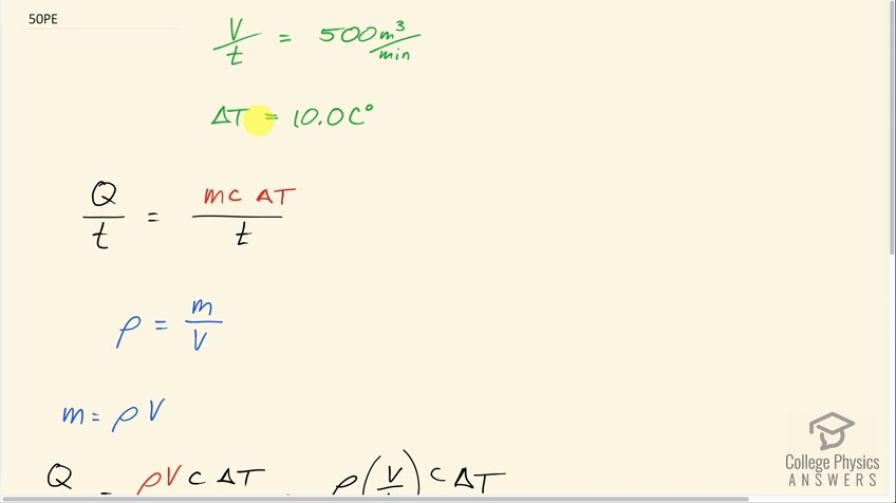 50PE
V/t = 500 m³/min
ΔT = 10.0 C°
Q/t = mc ΔT/t
ρ = m/V
m = ρ V
Q = ρV c ΔT = ρ(V/t) c ΔT
College Physics
ANSWERS